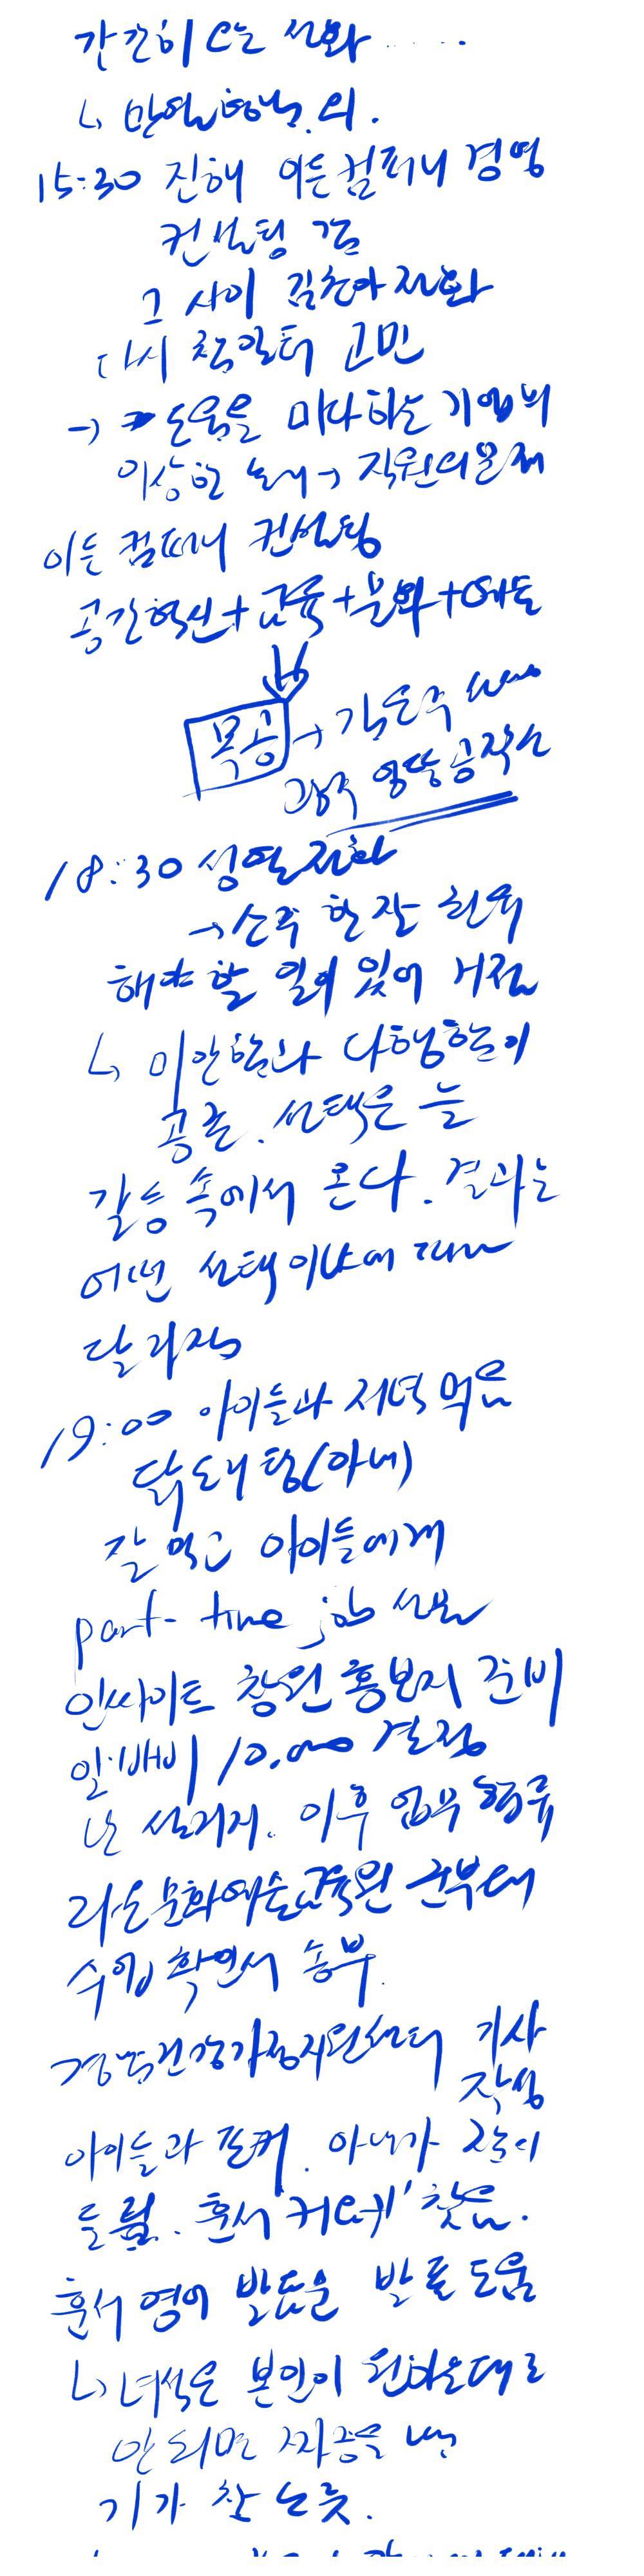 간간히 오는 전화 .....
15:30 진해 이든컴퍼니 경영
컨설팅 감
그 사이 김춘아 전화
다시 참일터 고민
→ 도움을 마다하는 기업의
이상한 논리 → 직원의 문제
이든 컴퍼니 컨설팅
공간혁신+교육+문화+예술
목공 →
공작소
18:30 성열 전화
→ 소주 한 잔 권유
해야 할 일이 있어 거절
↳ 미안함과 다행함이
공존. 선택은 늘
갈등 속에서 온다. 결과는
어떤 선택이냐에 따라
달라짐
19:00 아이들과 저녁 먹음
닭도리탕(아내)
잘 먹고 아이들에게
part-time job 선물
인싸이트 창원 홍보지 준비
10,000 결정
난 설거지. 이후 업무
라온문화예술교육원 군부대
수업 확인서 송부.
경남건강가정지원센터 기사
작성
아이들과 포커. 아내가 같이
훈서 찾음.
훈서 영어 발표 도움
↳ 녀석은 본인이 원하는대로
안 되면 짜증을 냄
기가 찬 노릇.